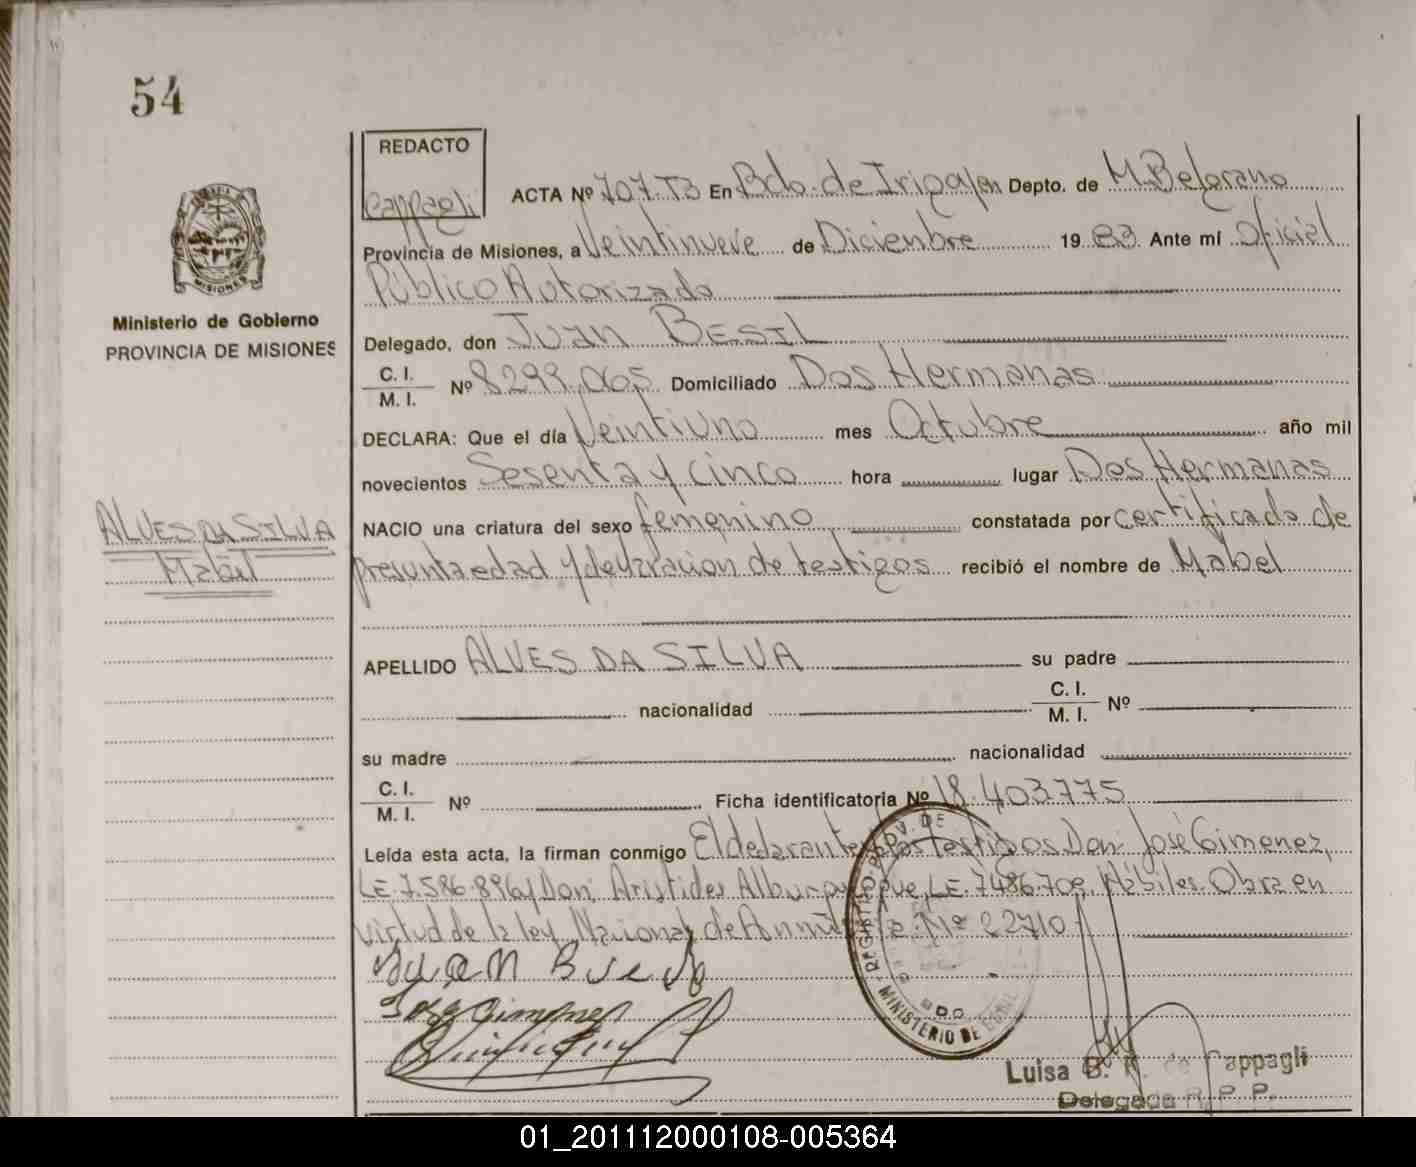 54
REDACTO
Cappagli
ACTA Nº 707.TB En Bdo. de Irigoyen Depto. de M. Belgrano
Provincia de Misiones, a Veintinueve de Diciembre 19 83. Ante mí Oficial
Público Autorizado
MISIONES
Ministerio de Gobierno
PROVINCIA DE MISIONES
Delegado, don Juan BESIL
C. I.
M. I.
Nº 8299.065 Domiciliado Dos Hermanas
DECLARA: Que el día Veintiuno mes Octubre año mil
novecientos Sesenta y cinco hora lugar Dos Hermanas
NACIO una criatura del sexo femenino constatada por certificado de
presunta edad y declaracion de testigos recibió el nombre de Mabel
ALVES DA SILVA
Mabel
APELLIDO ALVES DA SILVA su padre
nacionalidad C. I.
M. I. Nº
su madre nacionalidad
C. I.
M. I.
Nº Ficha identificatoria Nº 18.403775
Leída esta acta, la firman conmigo El declarante los testigos Don: José Gimenez,
LE. 7.586.896 y Don; Aristides Alburquerque, LE. 7486.709, Hábiles. Obra en
virtud de la ley Nacional de Amnistía. Nº 22710
Juan
Jose Gimenez
REGISTRO PROV. DE
MINISTERIO DE
Luisa B. de Cappagli
Delegada R. P. P.
01_201112000108-005364